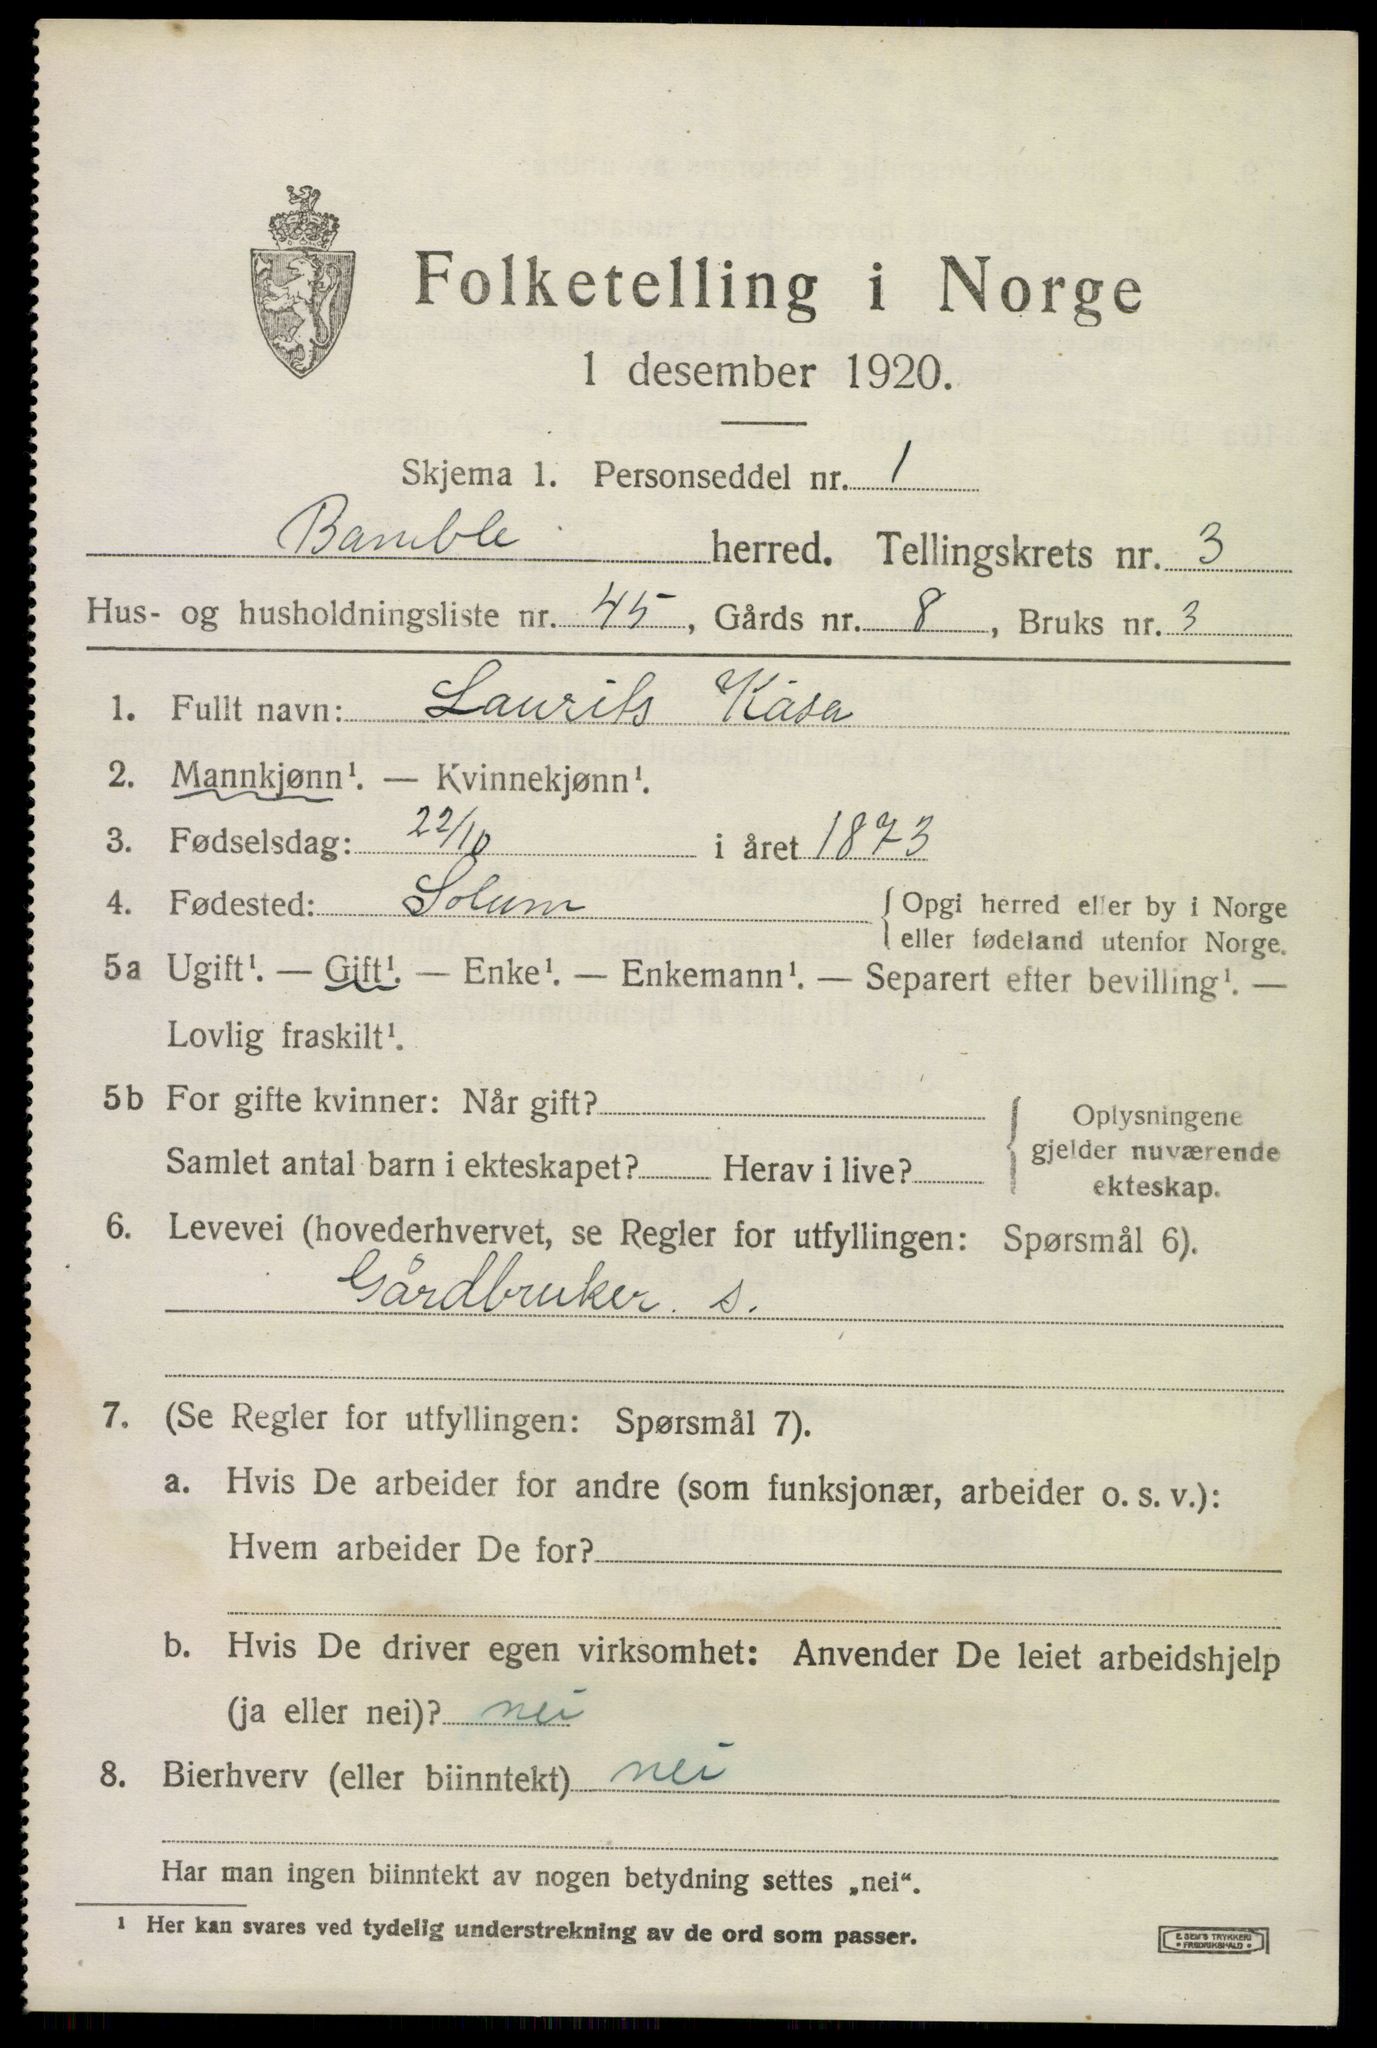 Folketelling i Norge
1 desember 1920.
Skjema 1. Personseddel nr. 1
Bamble herred. Tellingskrets nr. 3
Hus- og husholdningsliste nr. 45, Gårds nr. 8, Bruks nr. 3
1. Fullt navn: Laurits Kåsa
2. Mannkjønn¹. — Kvinnekjønn¹.
3. Fødselsdag: 22/10 i året 1873
4. Fødested: Solum { Opgi herred eller by i Norge
eller fødeland utenfor Norge.
5a Ugift¹. — Gift¹. — Enke¹. — Enkemann¹. — Separert efter bevilling¹. —
Lovlig fraskilt¹.
5b For gifte kvinner: Når gift? { Oplysningene
Samlet antal barn i ekteskapet? Herav i live? gjelder nuværende
ekteskap.
6. Levevei (hovederhvervet, se Regler for utfyllingen: Spørsmål 6).
Gårdbruker. s.
7. (Se Regler for utfyllingen: Spørsmål 7).
a. Hvis De arbeider for andre (som funksjonær, arbeider o. s. v.):
Hvem arbeider De for?
b. Hvis De driver egen virksomhet: Anvender De leiet arbeidshjelp
(ja eller nei)? nei
8. Bierhverv (eller biinntekt) nei
Har man ingen biinntekt av nogen betydning settes „nei“.
¹ Her kan svares ved tydelig understrekning av de ord som passer.
E. SEM'S TRYKKERI
• FREDRIKSHALD •